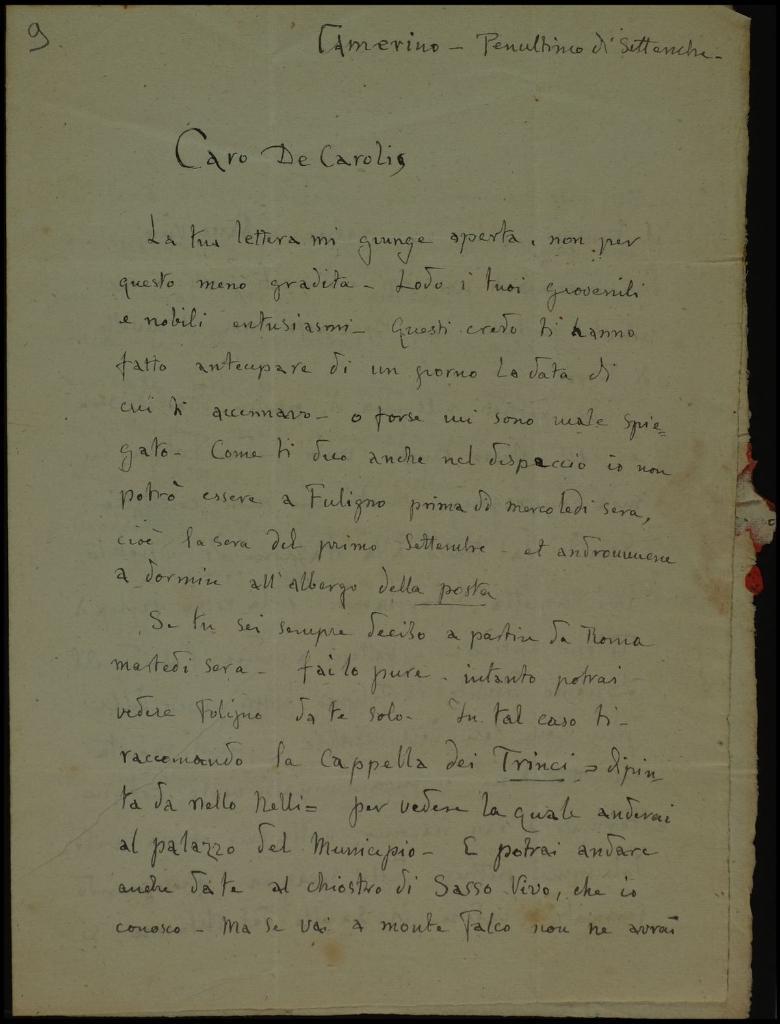 9.
Camerino - Penultimo di Settembre -
Caro De Carolis
La tua lettera mi giunge aperta, non per
questo meno gradita - Lodo i tuoi giovenili
e nobili entusiasmi - Questi credo ti hanno
fatto antecipare di un giorno la data di
cui ti accennavo - o forse mi sono male spie=
gato - Come ti dico anche nel dispaccio io non
potrò essere a Fuligno prima di mercoledi sera,
cioè la sera del primo Settembre - et andremmene
a dormire all'albergo della posta
Se tu sei sempre deciso a partire da Roma
martedi sera - failo pure - intanto potrai
vedere Foligno da te solo - In tal caso ti -
raccomando la Cappella dei Trinci = dipin=
ta da nello Nelli = per vedere la quale anderai
al palazzo del Municipio - E potrai andare
anche da te al chiostro di Sasso Vivo, che io
conosco - Ma se vai a monte Falco non ne avrai